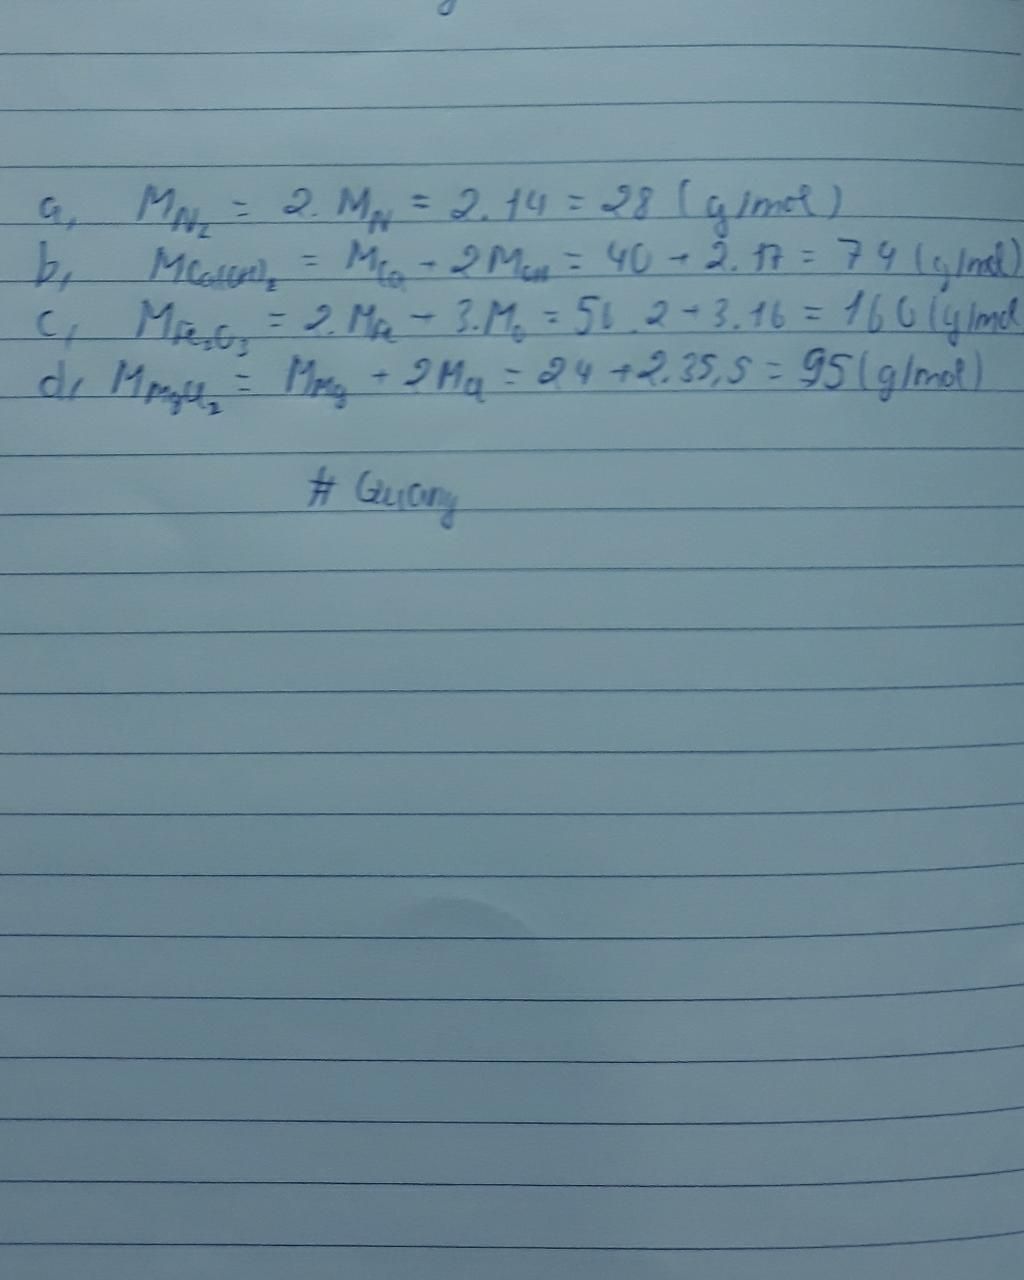 a, M_N₂ = 2. M_N = 2.14 = 28 (g/mol)
b, M_Ca(OH)₂ = M_Ca + 2M_OH = 40 + 2.17 = 74 (g/mol)
c, M_Fe₂O₃ = 2.M_Fe + 3.M_O = 56.2 + 3.16 = 160 (g/mol
d, M_MgCl₂ = M_Mg + 2M_Cl = 24 + 2.35,5 = 95 (g/mol)
# Quang